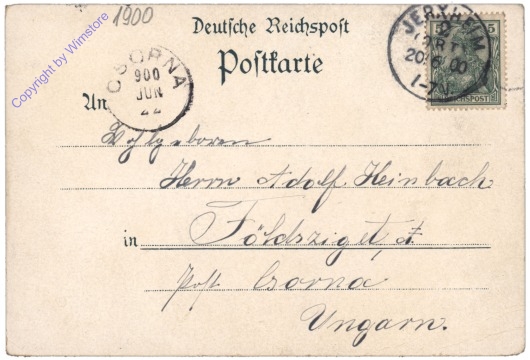 1900
Copyright by Wimstore
Deutsche Reichspost
Postkarte
JERXHEIM
20/6 00
1-2N.
5
REICHSPOST
CSORNA
900
JUN
22
An
Wohlgeboren
Herrn Adolf Heinbach
in Földsziget,
Post Csorna
Ungarn.